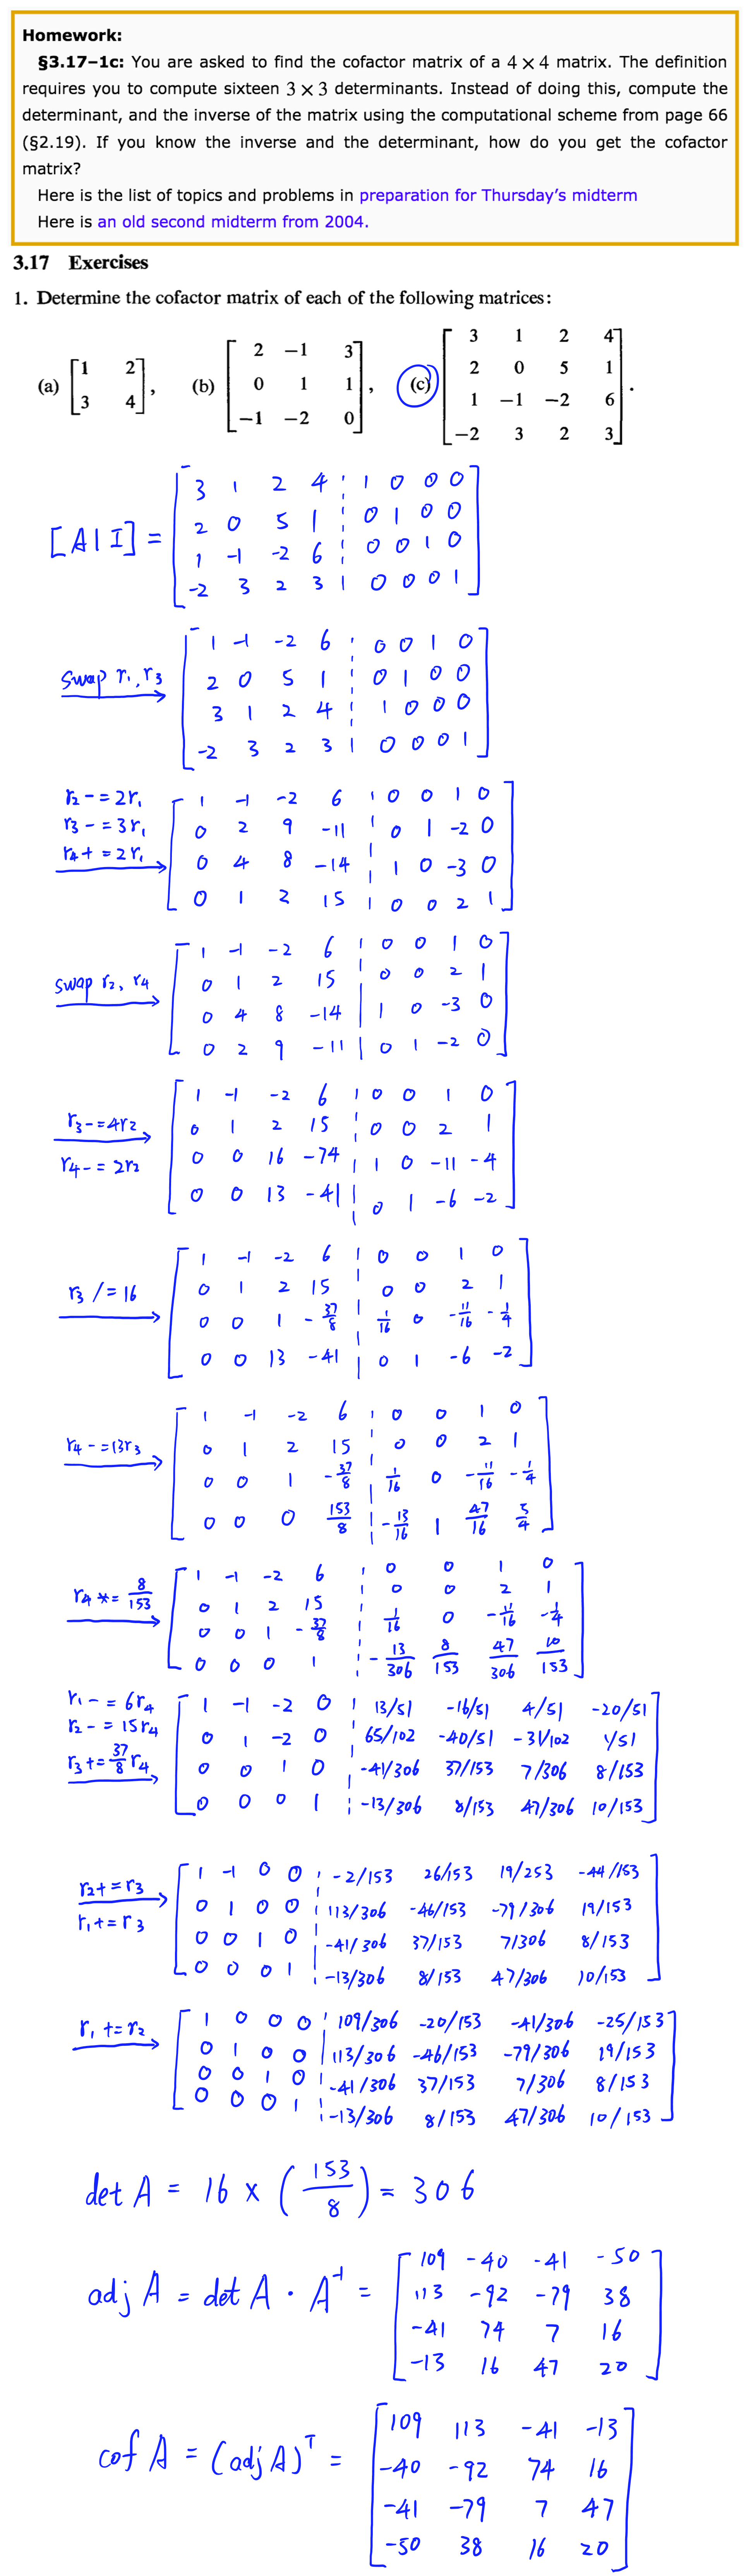 Homework:
§3.17–1c: You are asked to find the cofactor matrix of a 4 × 4 matrix. The definition
requires you to compute sixteen 3 × 3 determinants. Instead of doing this, compute the
determinant, and the inverse of the matrix using the computational scheme from page 66
(§2.19). If you know the inverse and the determinant, how do you get the cofactor
matrix?
Here is the list of topics and problems in preparation for Thursday's midterm
Here is an old second midterm from 2004.
3.17 Exercises
1. Determine the cofactor matrix of each of the following matrices:
(a) [1 2; 3 4], (b) [2 −1 3; 0 1 1; −1 −2 0], (c) [3 1 2 4; 2 0 5 1; 1 −1 −2 6; −2 3 2 3].
[A|I] =
3 1 2 4 | 1 0 0 0
2 0 5 1 | 0 1 0 0
1 -1 -2 6 | 0 0 1 0
-2 3 2 3 | 0 0 0 1
swap r1, r3
1 -1 -2 6 | 0 0 1 0
2 0 5 1 | 0 1 0 0
3 1 2 4 | 1 0 0 0
-2 3 2 3 | 0 0 0 1
r2 -= 2r1
r3 -= 3r1
r4 += 2r1
1 -1 -2 6 | 0 0 1 0
0 2 9 -11 | 0 1 -2 0
0 4 8 -14 | 1 0 -3 0
0 1 2 15 | 0 0 2 1
swap r2, r4
1 -1 -2 6 | 0 0 1 0
0 1 2 15 | 0 0 2 1
0 4 8 -14 | 1 0 -3 0
0 2 9 -11 | 0 1 -2 0
r3 -= 4r2
r4 -= 2r2
1 -1 -2 6 | 0 0 1 0
0 1 2 15 | 0 0 2 1
0 0 16 -74 | 1 0 -11 -4
0 0 13 -41 | 0 1 -6 -2
r3 /= 16
1 -1 -2 6 | 0 0 1 0
0 1 2 15 | 0 0 2 1
0 0 1 -37/8 | 1/16 0 -11/16 -1/4
0 0 13 -41 | 0 1 -6 -2
r4 -= 13r3
1 -1 -2 6 | 0 0 1 0
0 1 2 15 | 0 0 2 1
0 0 1 -37/8 | 1/16 0 -11/16 -1/4
0 0 0 153/8 | -13/16 1 47/16 5/4
r4 *= 8/153
1 -1 -2 6 | 0 0 1 0
0 1 2 15 | 0 0 2 1
0 0 1 -37/8 | 1/16 0 -11/16 -1/4
0 0 0 1 | -13/306 8/153 47/306 10/153
r1 -= 6r4
r2 -= 15r4
r3 += 37/8 r4
1 -1 -2 0 | 13/51 -16/51 4/51 -20/51
0 1 -2 0 | 65/102 -40/51 -31/102 1/51
0 0 1 0 | -41/306 37/153 7/306 8/153
0 0 0 1 | -13/306 8/153 47/306 10/153
r2 += r3
r1 += r3
1 -1 0 0 | -2/153 26/153 19/253 -44/153
0 1 0 0 | 113/306 -46/153 -79/306 19/153
0 0 1 0 | -41/306 37/153 7/306 8/153
0 0 0 1 | -13/306 8/153 47/306 10/153
r1 += r2
1 0 0 0 | 109/306 -20/153 -41/306 -25/153
0 1 0 0 | 113/306 -46/153 -79/306 19/153
0 0 1 0 | -41/306 37/153 7/306 8/153
0 0 0 1 | -13/306 8/153 47/306 10/153
det A = 16 × (153/8) = 306
adj A = det A · A⁻¹ =
109 -40 -41 -50
113 -92 -79 38
-41 74 7 16
-13 16 47 20
cof A = (adj A)ᵀ =
109 113 -41 -13
-40 -92 74 16
-41 -79 7 47
-50 38 16 20